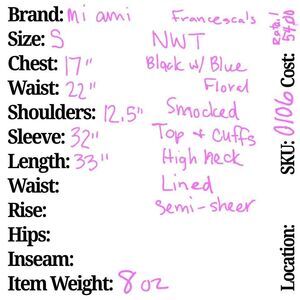 Brand: Mi ami
Francesca's
Size: S
NWT
Chest: 17"
Black w/ Blue
Waist: 22"
Floral
Shoulders: 12.5"
Smocked
Sleeve: 32"
Top + Cuffs
Length: 33"
High neck
Waist:
Lined
Rise:
Semi-sheer
Hips:
Inseam:
Item Weight: 8 oz
Retail
5400
SKU: 0106 Cost:
Location: